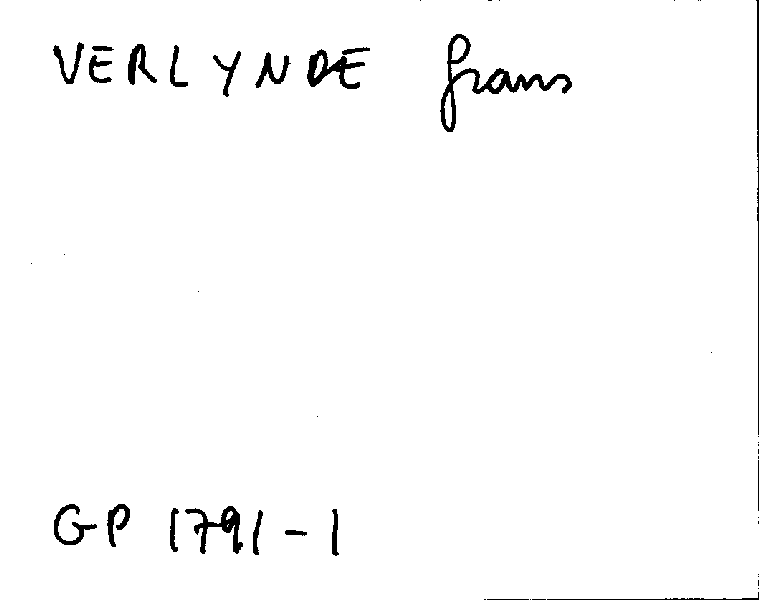 VERLYNDE Frans
GP 1791-1